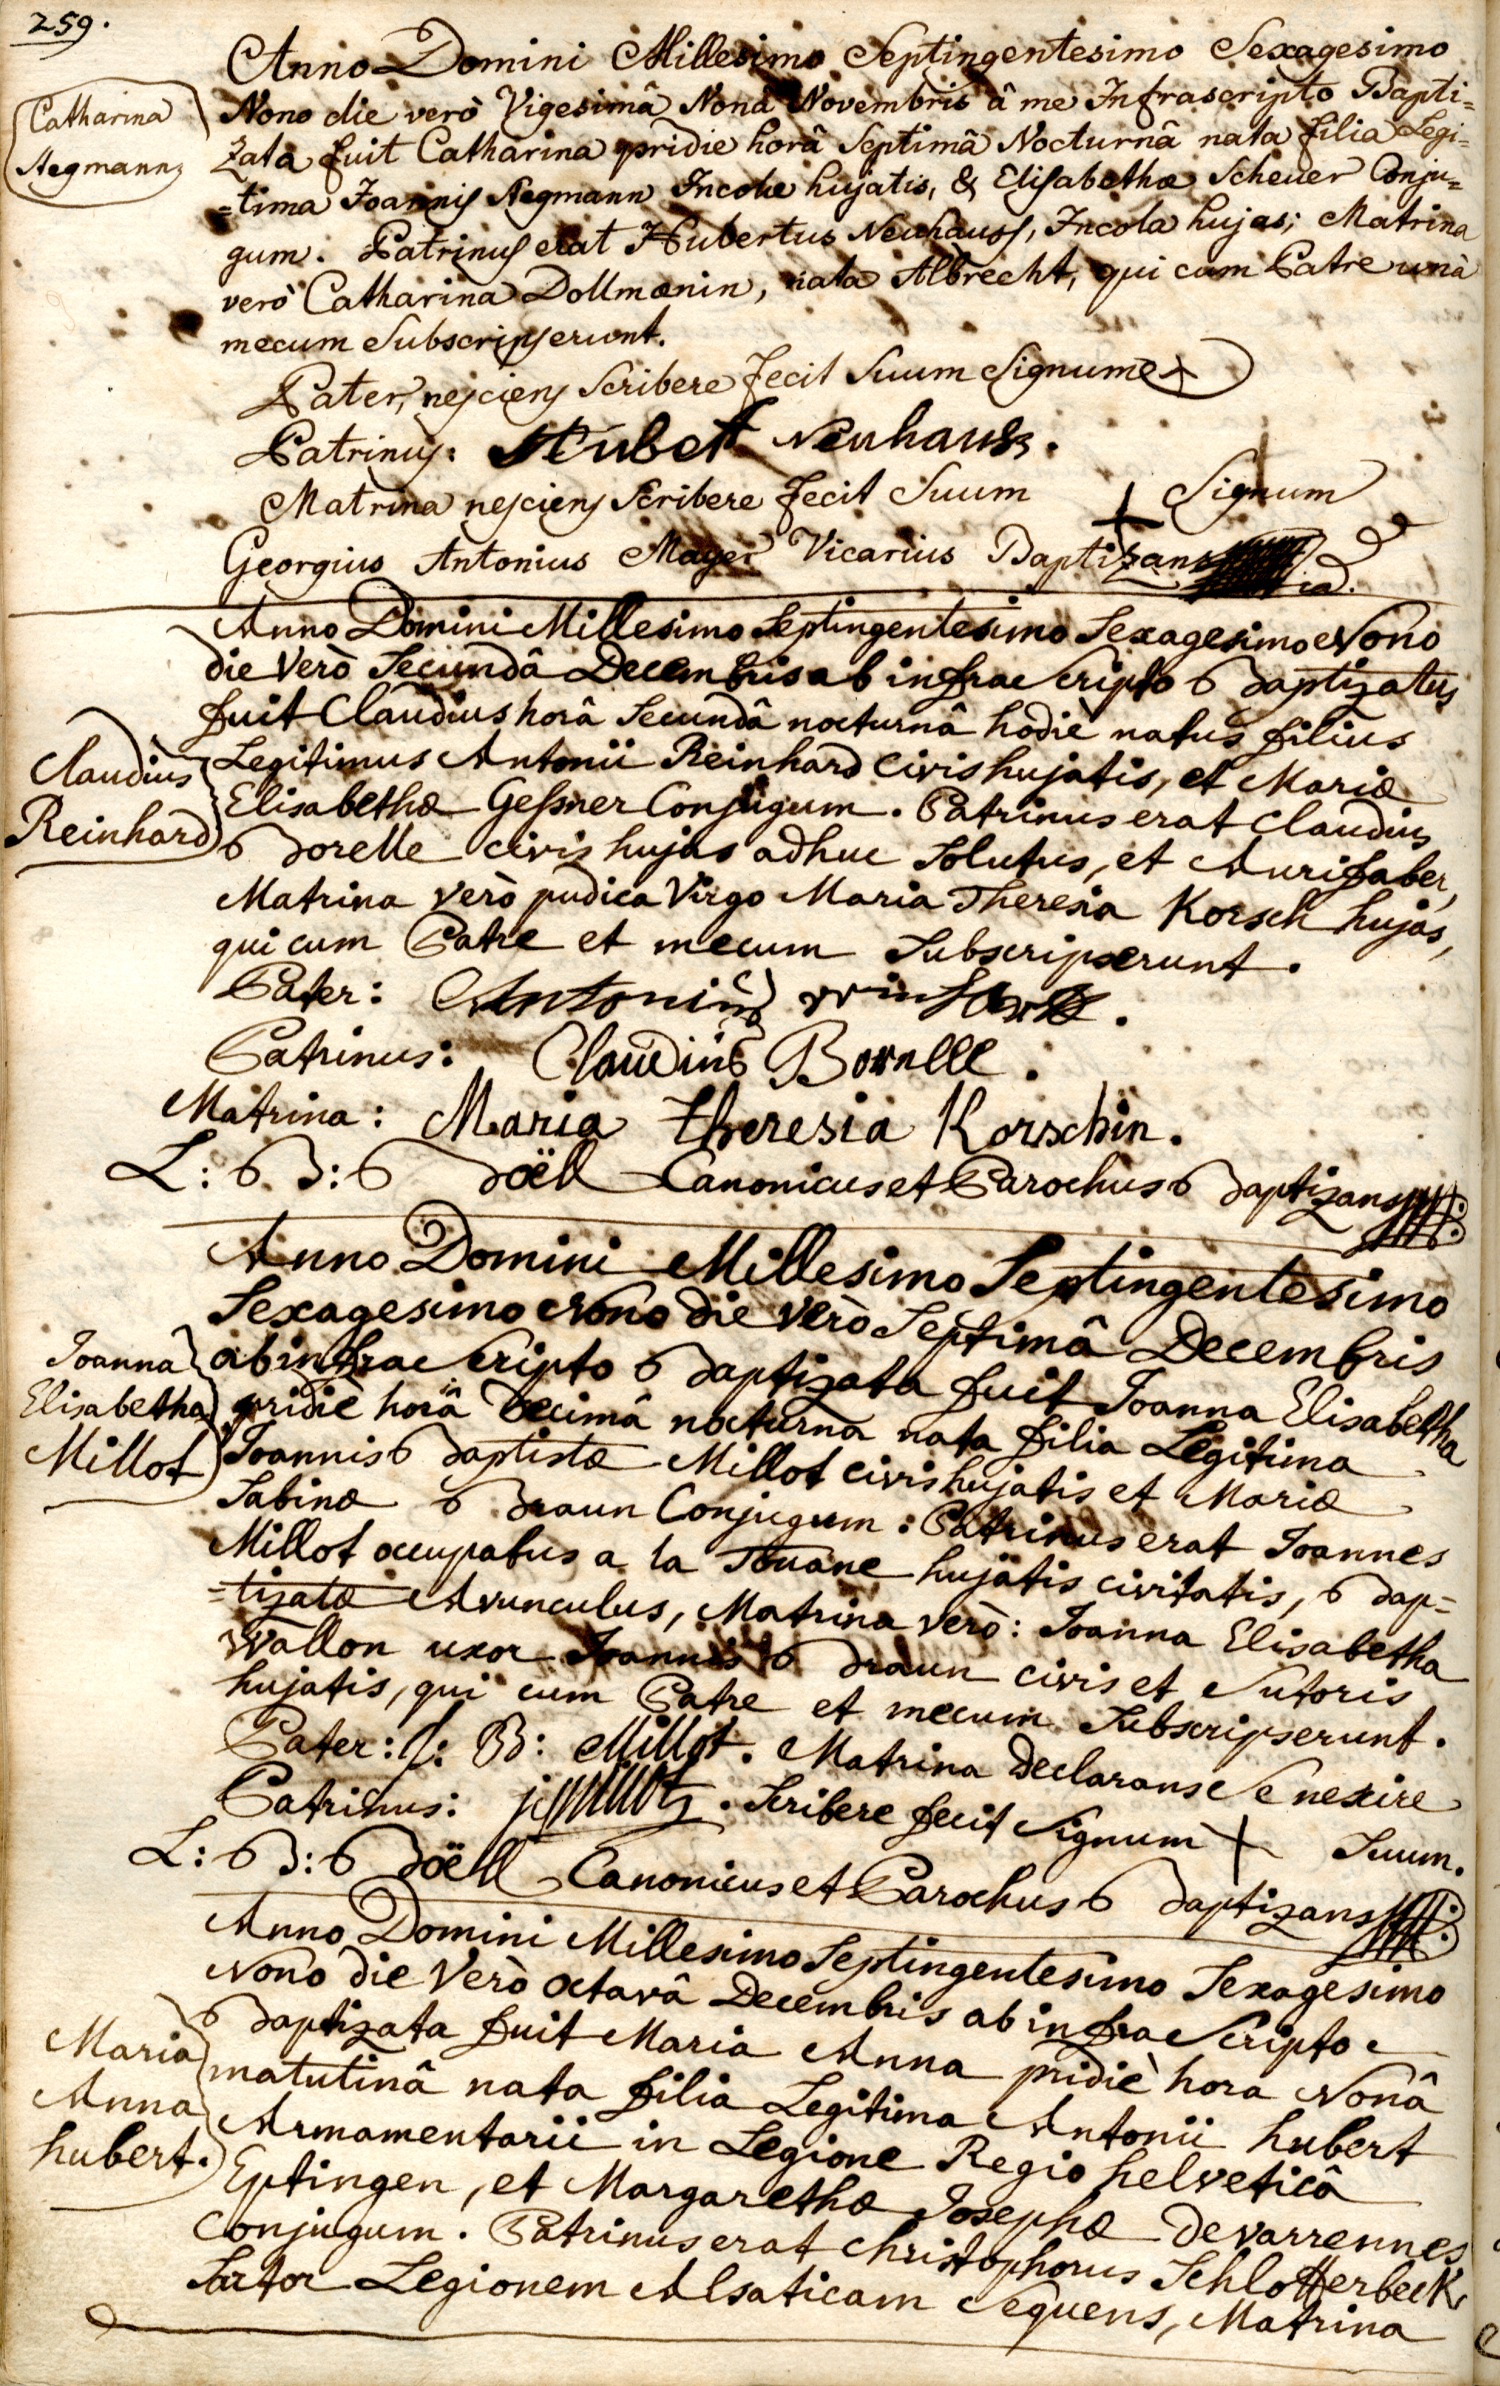 259.
Anno Domini Millesimo Septingentesimo Sexagesimo
Catharina
Aegmann
Nono die verò Vigesimâ Nonâ Novembris â me Infrascripto Bapti=
zata fuit Catharina pridie horâ Septimâ Nocturnâ nata filia Legi=
=tima Joannis Aegmann Incolae hujatis, & Elisabethae Scheuer Conju=
gum. Patrinus erat Hubertus Neuhauss, Incola hujas; Matrina
verò Catharina Dollmaenin, nata Albrecht, qui cum Patre unà
mecum Subscripserunt.
Pater, nesciens Scribere fecit Suum Signum +
Patrinus: Hubert Neuhauss.
Matrina nesciens Scribere fecit Suum + Signum
Georgius Antonius Mayer Vicarius Baptizans
Anno Domini Millesimo Septingentesimo Sexagesimo Nono
die Verò Secundâ Decembris ab infra Scripto Baptizatus
fuit Claudius horâ Secundâ nocturnâ hodiè natus filius
Claudius
Reinhard
Legitimus Antonii Reinhard civis hujatis, et Mariae
Elisabethae Gessner Conjugum. Patrinus erat Claudius
Borelle civis hujas adhuc Solutus, et Aurifaber,
Matrina verò pudica Virgo Maria Theresia Korsch hujas,
qui cum Patre et mecum Subscripserunt.
Pater: Antonius
Patrinus: Claudius Borelle.
Matrina: Maria Theresia Korschin.
L: B: Böell Canonicus et Parochus Baptizans
Anno Domini Millesimo Septingentesimo
Sexagesimo Nono die Verò Septimâ Decembris
Joanna
Elisabetha
Millot
ab infra Scripto Baptizata fuit Joanna Elisabetha
pridiè horâ Decimâ nocturna nata filia Legitima
Joannis Baptistae Millot civis hujatis et Mariae
Sabinae Braun Conjugum: Patrinus erat Joannes
Millot occupatus a la Douane hujatis civitatis, Bap=
=tizatae Avunculus, Matrina verò: Joanna Elisabetha
Wallon uxor Joannis Braun civis et Sutoris
hujatis, qui cum Patre et mecum Subscripserunt.
Pater: J: B: Millot. Matrina Declarans Se nescire
Patrinus: j millot. Scribere fecit Signum + Suum.
L: B: Böell Canonicus et Parochus Baptizans
Anno Domini Millesimo Septingentesimo Sexagesimo
Nono die Verò octavâ Decembris ab infra Scripto
Maria
Anna
hubert.
Baptizata fuit Maria Anna pridiè hora Nonâ
matutinâ nata filia Legitima Antonii hubert
Armamentarii in Legione Regio helveticâ
Eptingen, et Margarethae Josephae Devarrennes
Conjugum. Patrinus erat Christophorus Schlotterbeck
Sartor Legionem Alsaticam Sequens, Matrina